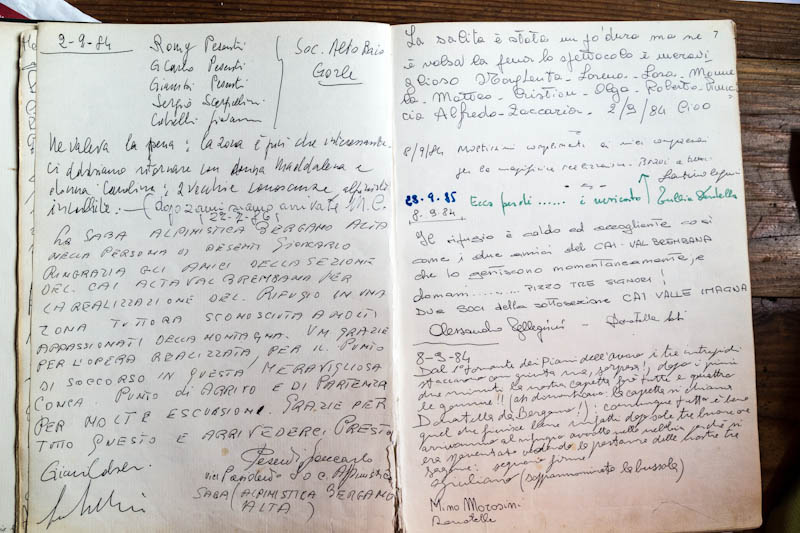 2-9-84
Romy Pesenti
G. Carlo Pesenti
Giannetti Pesenti
Sergio
Giovanni
Soc. Alto Raio
Gorle
Ne valeva la pena: la zona è più che interessante
ci dobbiamo ritornare con donna Maddalena e
donna Carolina: 2 vecchie conoscenze alpinisti
(dopo 2 anni siamo arrivate M.C.
22-7-86)
LA SABA ALPINISTICA BERGAMO ALTA
NELLA PERSONA DI PESENTI GIANCARLO
RINGRAZIA GLI AMICI DELLA SEZIONE
DEL CAI ALTA VAL BREMBANA PER
LA REALIZZAZIONE DEL RIFUGIO IN UNA
ZONA TUTTORA SCONOSCIUTA A MOLTI
APPASSIONATI DELLA MONTAGNA. UN GRAZIE
PER L'OPERA REALIZZATA, PER IL PUNTO
DI SOCCORSO IN QUESTA MERAVIGLIOSA
CONCA. PUNTO DI ARRIVO E DI PARTENZA
PER MOLTE ESCURSIONI. GRAZIE PER
TUTTO QUESTO E ARRIVEDERCI PRESTO
Pesenti Giancarlo
SABA (ALPINISTICA BERGAMO
ALTA)
7
La salita è stata un po' dura ma ne
è valsa la pena lo spettacolo è meravi
glioso Margherita - Lorena - Lara - Manue
la - Matteo - Cristian - Olga - Roberto - Vinic
cia Alfredo - Zaccaria. 2/9/84 Ciao
8/9/84 Moltissimi complimenti ai miei compaesani
per la magnifica realizzazione. Bravi
28.9.85 Ecco perché ...... i mericato
8.9.84
Il rifugio è caldo ed accogliente così
come i due amici del CAI-VAL BREMBANA
che lo gestiscono momentaneamente, e
domani ......... PIZZO TRE SIGNORI!
DUE SOCI della sottosezione CAI VALLE IMAGNA
Alessandro Pellegrini - Donatella
8-9-84
Dal fornante dei Piani dell'Avaro i tre intrepidi
staccarono in quinta ma, sorpresa!, dopo i primi
due minuti la nostra capetta era a tutte e quattro
le gomme!! (ah dimenticavo: la capetta si chiama
Donatella da Bergamo!!): comunque tutto è bene
quel che finisce bene infatti dopo sole tre buone ore
arrivammo al rifugio avvolto nella nebbia perché si
era spaventato vedendo le prestanze delle nostre tre
sagome: seguono firme
Giuliano (soprannominato la bussola)
Mino Morosini
Donatella